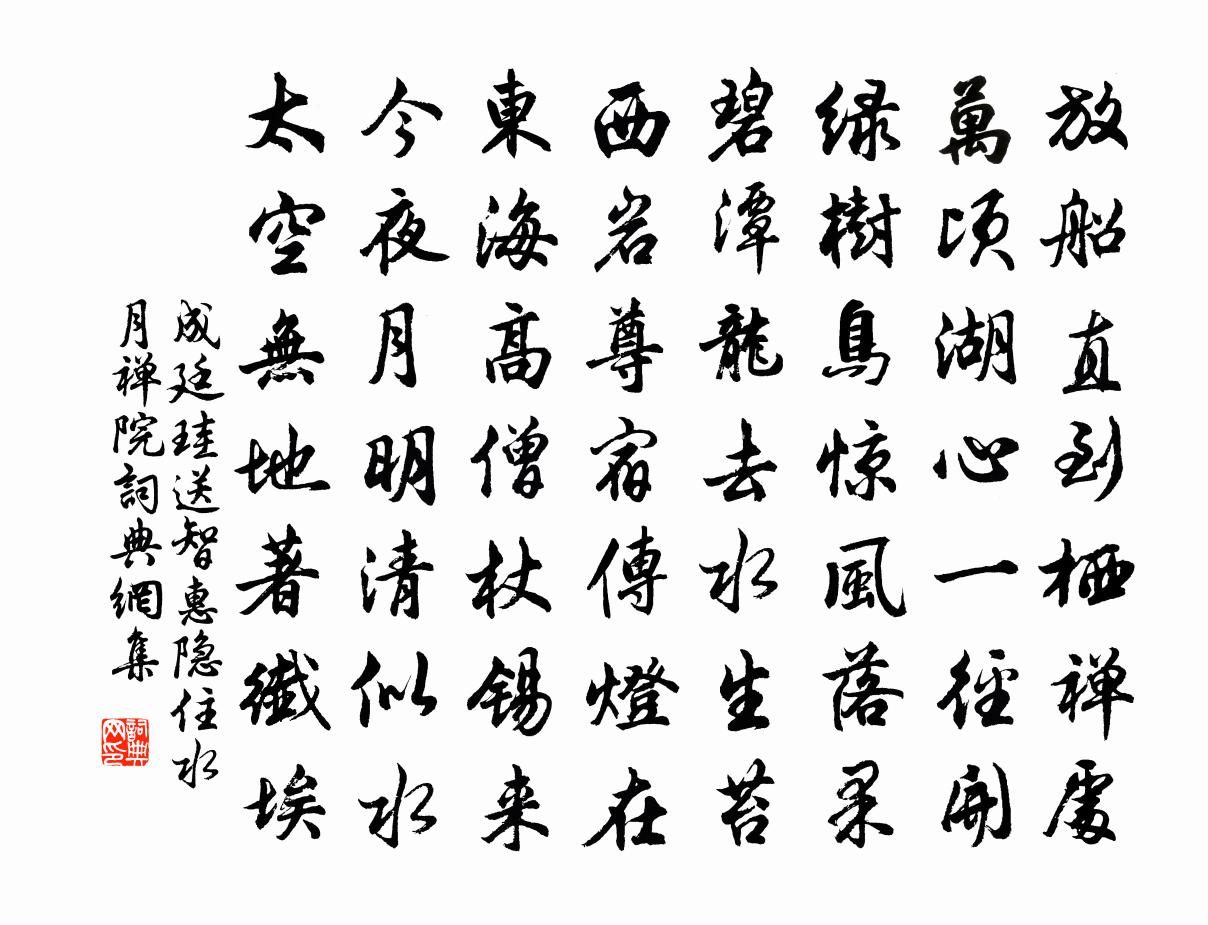 放船直到栖禅處
萬頃湖心一徑開
緑樹鳥惊風落果
碧潭龍去水生苔
西岩尊宿傳燈在
東海高僧杖錫来
今夜月明清似水
太空無地著纖埃
成廷珪送智惠隐住水
月禅院詞典網集
詞典
网印